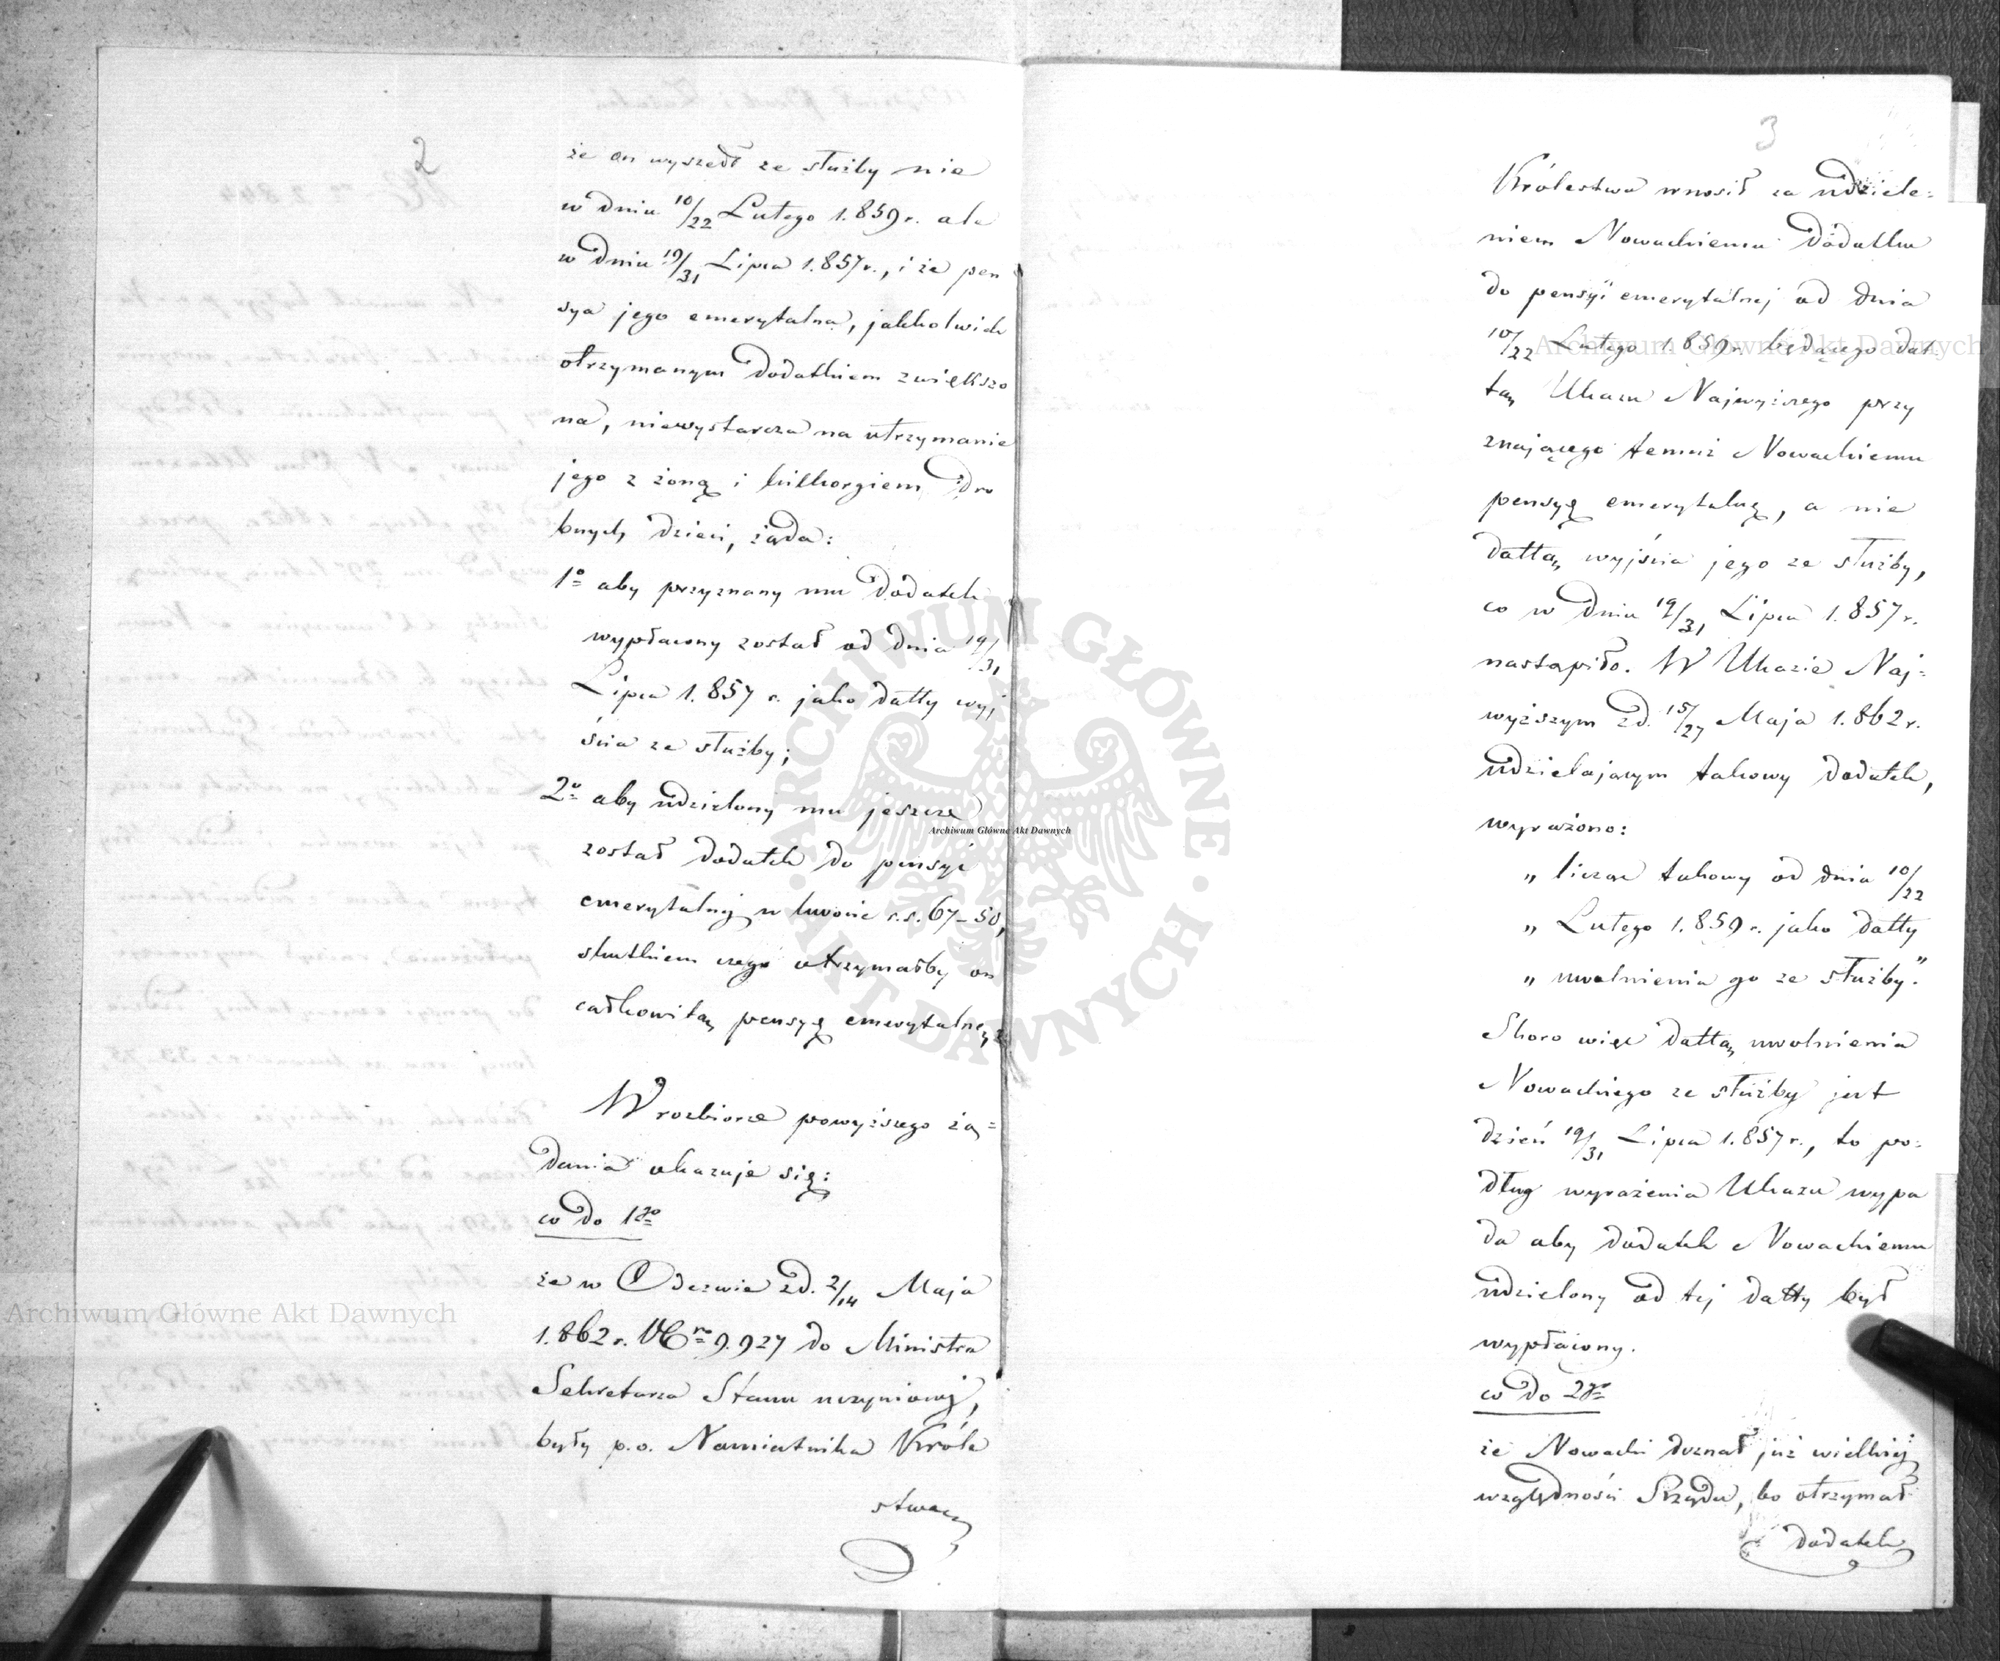 2
że on wyszedł ze służby nie
w dniu 10/22 Lutego 1.859 r. ale
w dniu 19/31 Lipca 1.857 r., i że pen
sya jego emerytalna, jakkolwiek
otrzymanym dodatkiem zwiększo
na, niewystarcza na utrzymanie
jego z żoną i kilkorgiem dro
bnych dzieci, żąda:
1º aby przyznany mu dodatek
wypłacony został od dnia 19/31
Lipca 1.857 r. jako datty wyj
ścia ze służby;
2º aby udzielony mu jeszcze
został dodatek do pensyi
emerytalnej w kwocie r.s. 67-50,
skutkiem czego otrzymałby on
całkowitą pensyę emerytalną
W rozbiorze powyższego żą=
dania okazuje się:
co do 1go
że w Odezwie zd. 2/14 Maja
1.862 r. Nro 9.927 do Ministra
Sekretarza Stanu uczynionej,
były p.o. Namiestnika Króle
stwa
3
Królestwa wnosił za udziele=
niem Nowackiemu dodatku
do pensyi emerytalnej od dnia
10/22 Lutego 1.859 r. będącego dat
tą Ukazu Najwyższego przy
znającego temuż Nowackiemu
pensyę emerytalną, a nie
dattą wyjścia jego ze służby,
co w dniu 19/31 Lipca 1.857 r.
nastąpiło. W Ukazie Naj=
wyższym zd. 15/27 Maja 1.862 r.
udzielającym takowy dodatek,
wyrażono:
„ licząc takowy od dnia 10/22
„ Lutego 1.859 r. jako datty
„ uwolnienia go ze służby".
Skoro więc dattą uwolnienia
Nowackiego ze służby jest
dzień 19/31 Lipca 1.857 r., to po=
dług wyrażenia Ukazu wypa
da aby dodatek Nowackiemu
udzielony od tej datty był
wypłacony.
co do 2go
że Nowacki doznał już wielkiej
względności Rządu, bo otrzymał
dodatek
Archiwum Główne Akt Dawnych
Archiwum Główne Akt Dawnych
Archiwum Główne Akt Dawnych
ARCHIWUM GŁÓWNE · AKT DAWNYCH ·